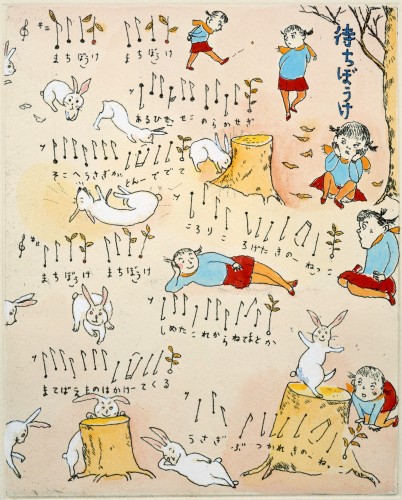 待ちぼうけ
まちぼうけ まちぼうけ
あるひせっせこ のらかせぎ
そこへうさぎが とんーででて
ころり ろげたきのーねっこ
まちぼうけ まちぼうけ
しめたこれからねてまとか
まてばえものはかけーてくる
うさぎ ぶつかれきの